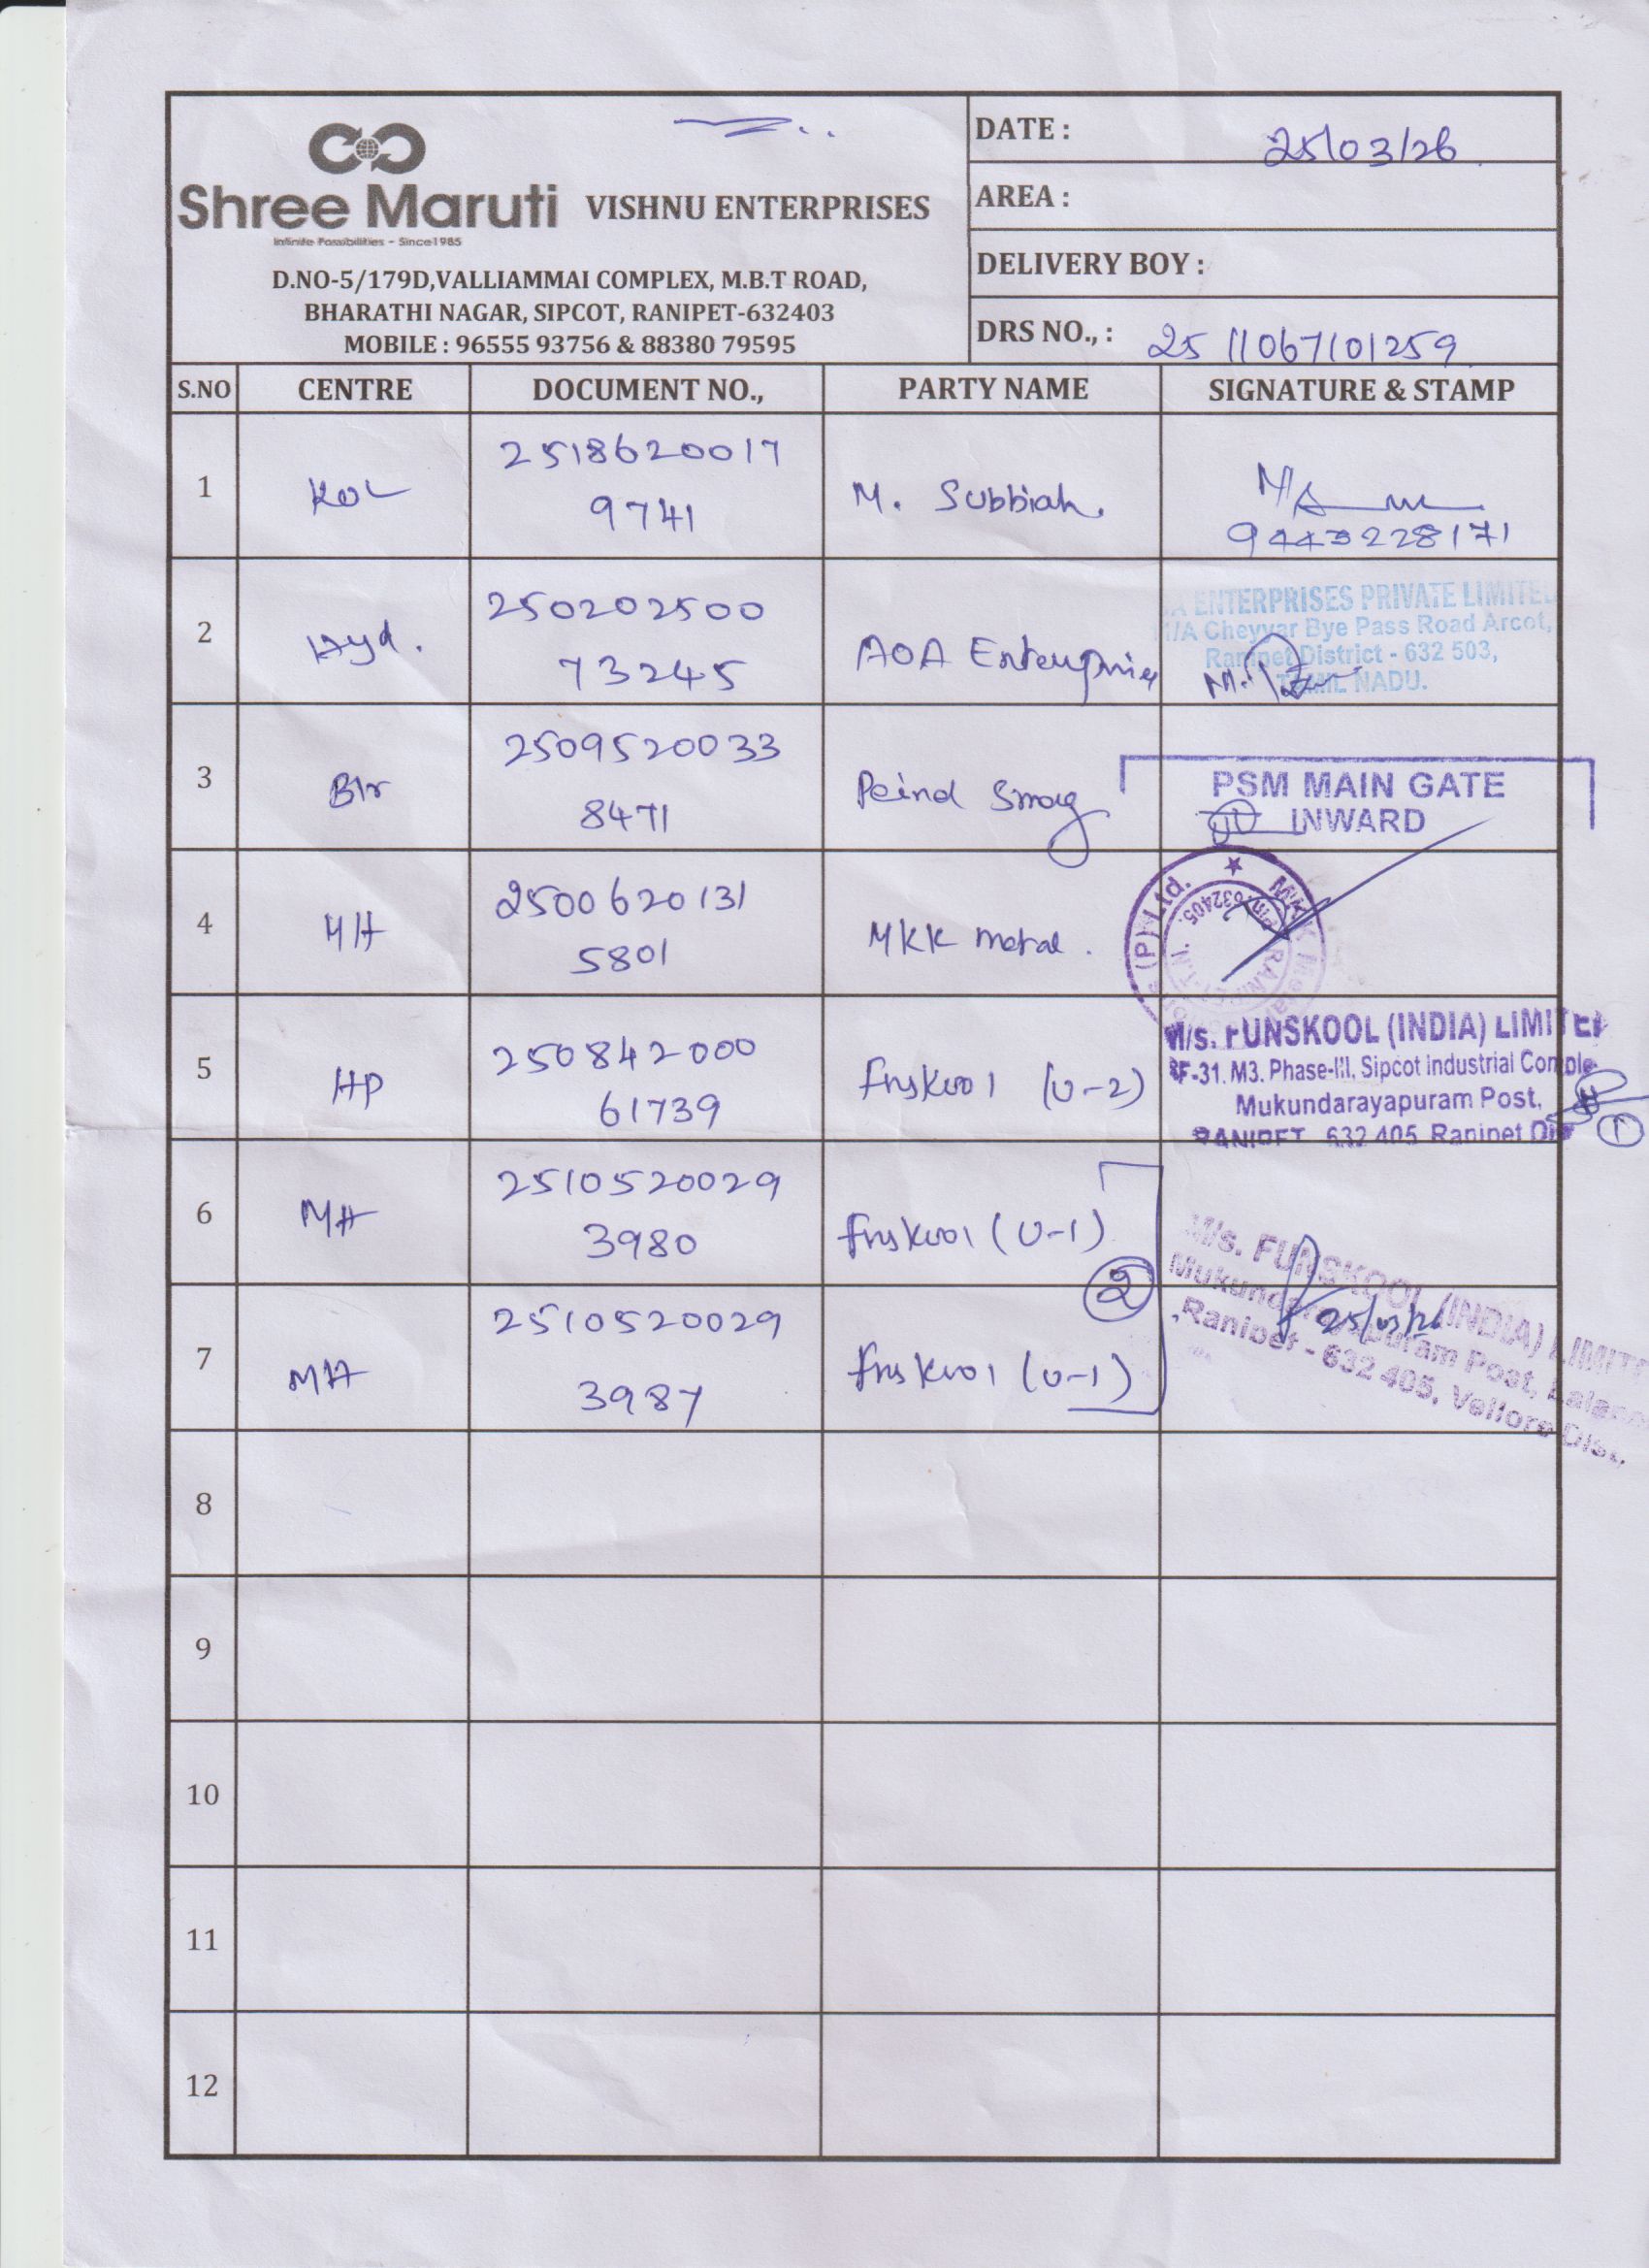 Shree Maruti
Infinite Possibilities - Since1985
VISHNU ENTERPRISES
D.NO-5/179D,VALLIAMMAI COMPLEX, M.B.T ROAD,
BHARATHI NAGAR, SIPCOT, RANIPET-632403
MOBILE : 96555 93756 & 88380 79595
DATE : 25/03/26
AREA :
DELIVERY BOY :
DRS NO., : 25 11067101259
S.NO CENTRE DOCUMENT NO., PARTY NAME SIGNATURE & STAMP
1 KOL 2518620017 9741 M. Subbiah. 9443228171
2 Hyd. 250202500 73245 AOA Enterprises
A ENTERPRISES PRIVATE LIMITED
1/A Cheyyar Bye Pass Road Arcot,
Ranipet District - 632 503,
TAMIL NADU.
3 Blr 2509520033 8471
PSM MAIN GATE
INWARD
4 MH 2500620131 5801 MKK metal.
(P) Ltd. ★ MKK Metal
632405.
5 HP 250842000 61739 Fnskool (U-2)
M/s. FUNSKOOL (INDIA) LIMITED
SF-31. M3. Phase-III, Sipcot Industrial Comple
Mukundarayapuram Post,
RANIPET 632 405 Ranipet Dis
1
6 MH 2510520029 3980 Fnskool (U-1)
2
7 MH 2510520029 3987 Fnskool (U-1)
M/s. FUNSKOOL (INDIA) LIMITE
Mukundarayapuram Post, Lalape
,Ranipet - 632 405, Vellore Dist.,
25/03/26
8
9
10
11
12